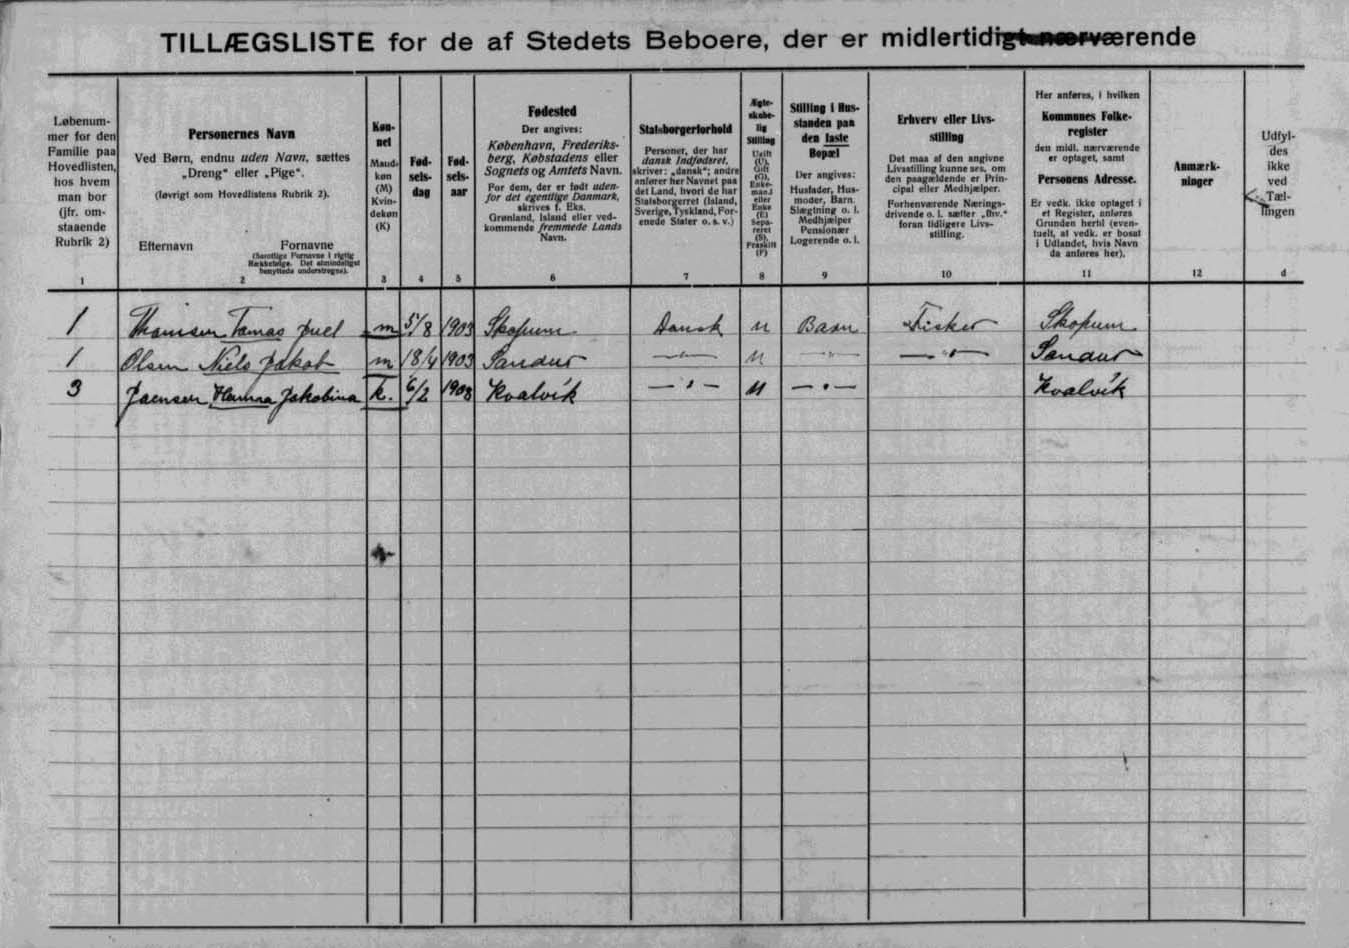 TILLÆGSLISTE for de af Stedets Beboere, der er midlertidigt nærværende
Løbenum-
mer for den
Familie paa
Hovedlisten,
hos hvem
man bor
(jfr. om-
staaende
Rubrik 2)
1
Personernes Navn
Ved Børn, endnu uden Navn, sættes
„Dreng“ eller „Pige“.
(Iøvrigt som Hovedlistens Rubrik 2).
Efternavn Fornavne
(Samtlige Fornavne i rigtig
Rækkefølge. Det almindeligst
benyttede understreges).
2
Køn-
net
Mand-
køn
(M)
Kvin-
dekøn
(K)
3
Fød-
sels-
dag
4
Fød-
sels-
aar
5
Fødested
Der angives:
København, Frederiks-
berg, Købstadens eller
Sognets og Amtets Navn.
For dem, der er født uden-
for det egentlige Danmark,
skrives f. Eks.
Grønland, Island eller ved-
kommende fremmede Lands
Navn.
6
Statsborgerforhold
Personer, der har
dansk Indfødsret,
skriver: „dansk“; andre
anfører her Navnet paa
det Land, hvori de har
Statsborgerret (Island,
Sverige, Tyskland, For-
enede Stater o. s. v.)
7
Ægte-
skabe-
lig
Stilling
Ugift
(U),
Gift
(G),
Enke-
mand
eller
Enke
(E)
Sepa-
reret
(S),
Fraskilt
(F)
8
Stilling i Hus-
standen paa
den faste
Bopæl
Der angives:
Husfader, Hus-
moder, Barn.
Slægtning o. l.
Medhjælper
Pensionær
Logerende o. l.
9
Erhverv eller Livs-
stilling
Det maa af den angivne
Livsstilling kunne ses, om
den paagældende er Prin-
cipal eller Medhjælper.
Forhenværende Nærings-
drivende o. l. sætter „fhv.“
foran tidligere Livs-
stilling.
10
Her anføres, i hvilken
Kommunes Folke-
register
den midl. nærværende
er optaget, samt
Personens Adresse.
Er vedk. ikke optaget i
et Register, anføres
Grunden hertil (even-
tuelt, at vedk. er bosat
i Udlandet, hvis Navn
da anføres her).
11
Anmærk-
ninger
12
Udfyl-
des
ikke
ved
Tæl-
lingen
d
1 Thomsen Tomas Juel m 5/8 1903 Skopum Dansk u Barn Fisker Skopum
1 Olsen Niels Jakob m 18/4 1903 Sandur — " — u — " — — " — Sandur
3 Joensen Hanna Jakobina k. 6/2 1908 Kvalvík — " — u — " — Kvalvík